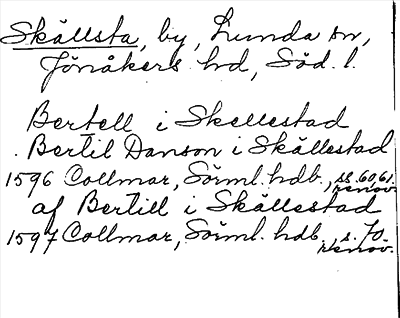 Skällsta, by, Lunda sn,
Jönåkers hd, Söd. l.
Bertell i Skellestad
Bertil Danson i Skällestad
1596 Collmar, Sörml. hdb., ss. 60, 61. renov.
af Bertill i Skällestad
1597 Collmar, Sörml. hdb., s. 70. renov.